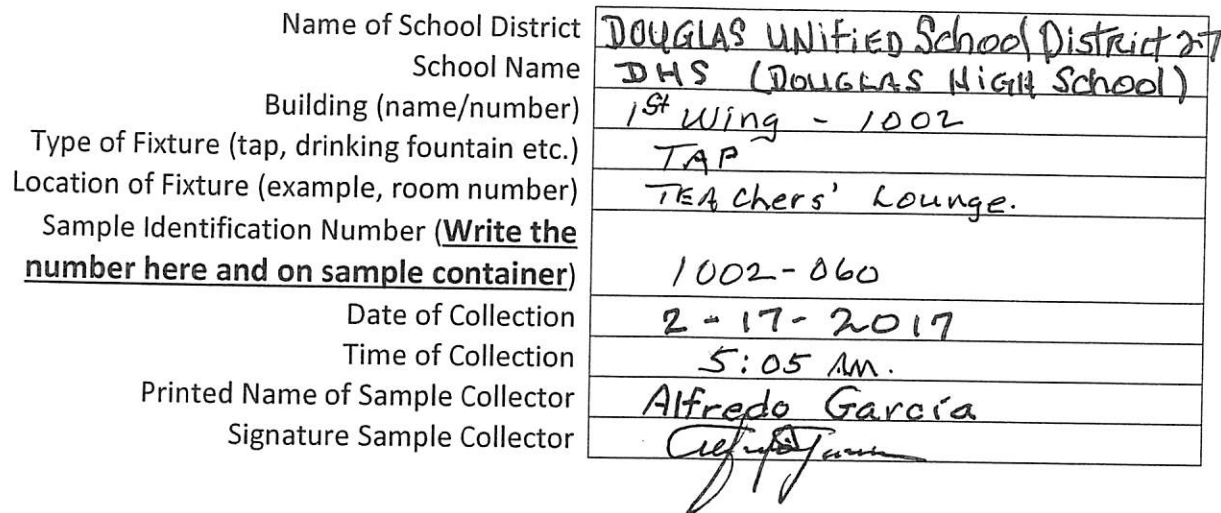 Name of School District DOUGLAS UNiFiED School District 27
School Name DHS (DOUGLAS HIGH School)
Building (name/number) 1st Wing - 1002
Type of Fixture (tap, drinking fountain etc.) TAP
Location of Fixture (example, room number) TEAchers' Lounge.
Sample Identification Number (Write the
number here and on sample container) 1002-060
Date of Collection 2-17-2017
Time of Collection 5:05 AM.
Printed Name of Sample Collector Alfredo García
Signature Sample Collector